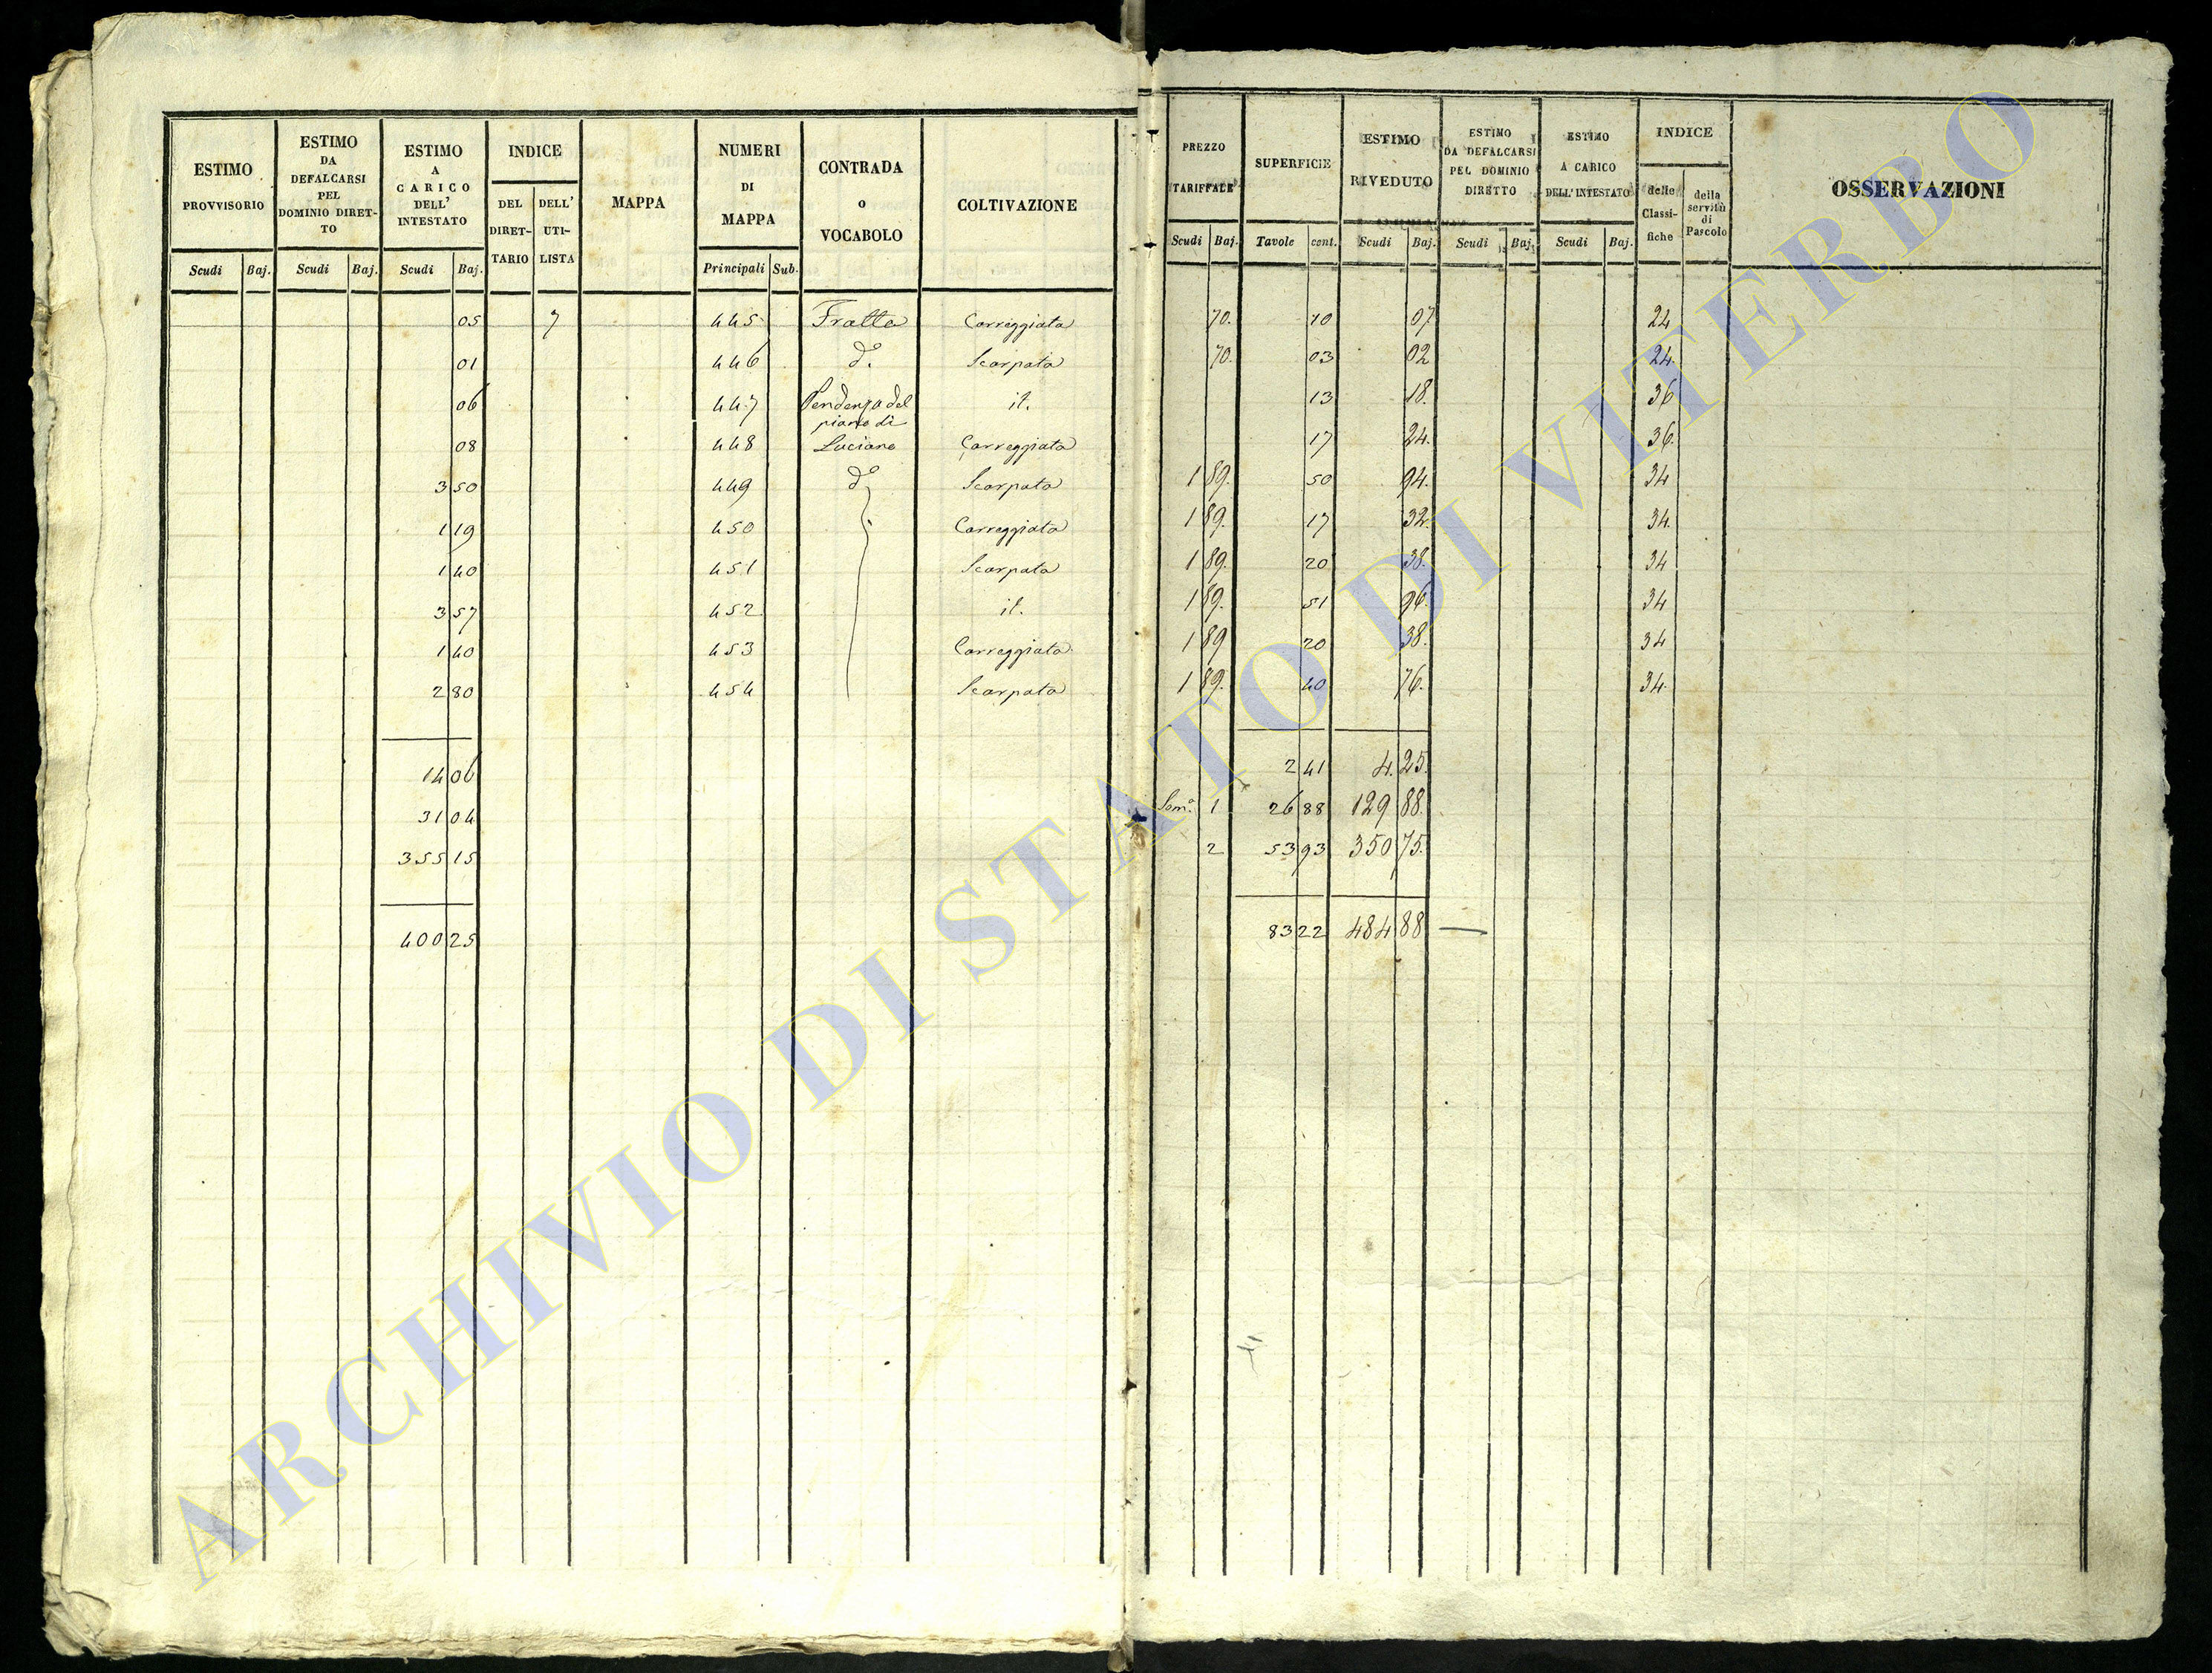 ESTIMO PROVVISORIO
ESTIMO DA DEFALCARSI PEL DOMINIO DIRET-TO
ESTIMO A CARICO DELL' INTESTATO
INDICE
DEL DIRET-TARIO
DELL' UTI-LISTA
MAPPA
NUMERI DI MAPPA
CONTRADA o VOCABOLO
COLTIVAZIONE
Scudi Baj. Scudi Baj. Scudi Baj. Principali Sub.
05 7 445 Fratta Carreggiata
01 446 d.° Scarpata
06 447 Pendenza del it.
piano di
08 448 Luciano Carreggiata
3 50 449 d° Scarpata
1 19 450 Carreggiata
1 40 451 Scarpata
3 57 452 it.
1 40 453 Carreggiata
2 80 454 Scarpata
14 06
31 04
355 15
400 25
PREZZO TARIFFALE
SUPERFICIE
ESTIMO RIVEDUTO
ESTIMO DA DEFALCARSI PEL DOMINIO DIRETTO
ESTIMO A CARICO DELL' INTESTATO
INDICE
delle Classi-fiche
della servitù di Pascolo
OSSERVAZIONI
Scudi Baj. Tavole cent. Scudi Baj. Scudi Baj. Scudi Baj.
70. 10 07 24
70. 03 02 24.
13 18. 36
17 24. 36.
1 89. 50 94. 34
1 89. 17 32. 34.
1 89. 20 38. 34
1 89. 51 96. 34
1 89 20 38. 34
1 89. 40 76. 34.
2 41 4. 25.
Som.ª 1 26 88 129 88.
2 53 93 350 75.
83 22 484 88 —
ARCHIVIO DI STATO DI VITERBO